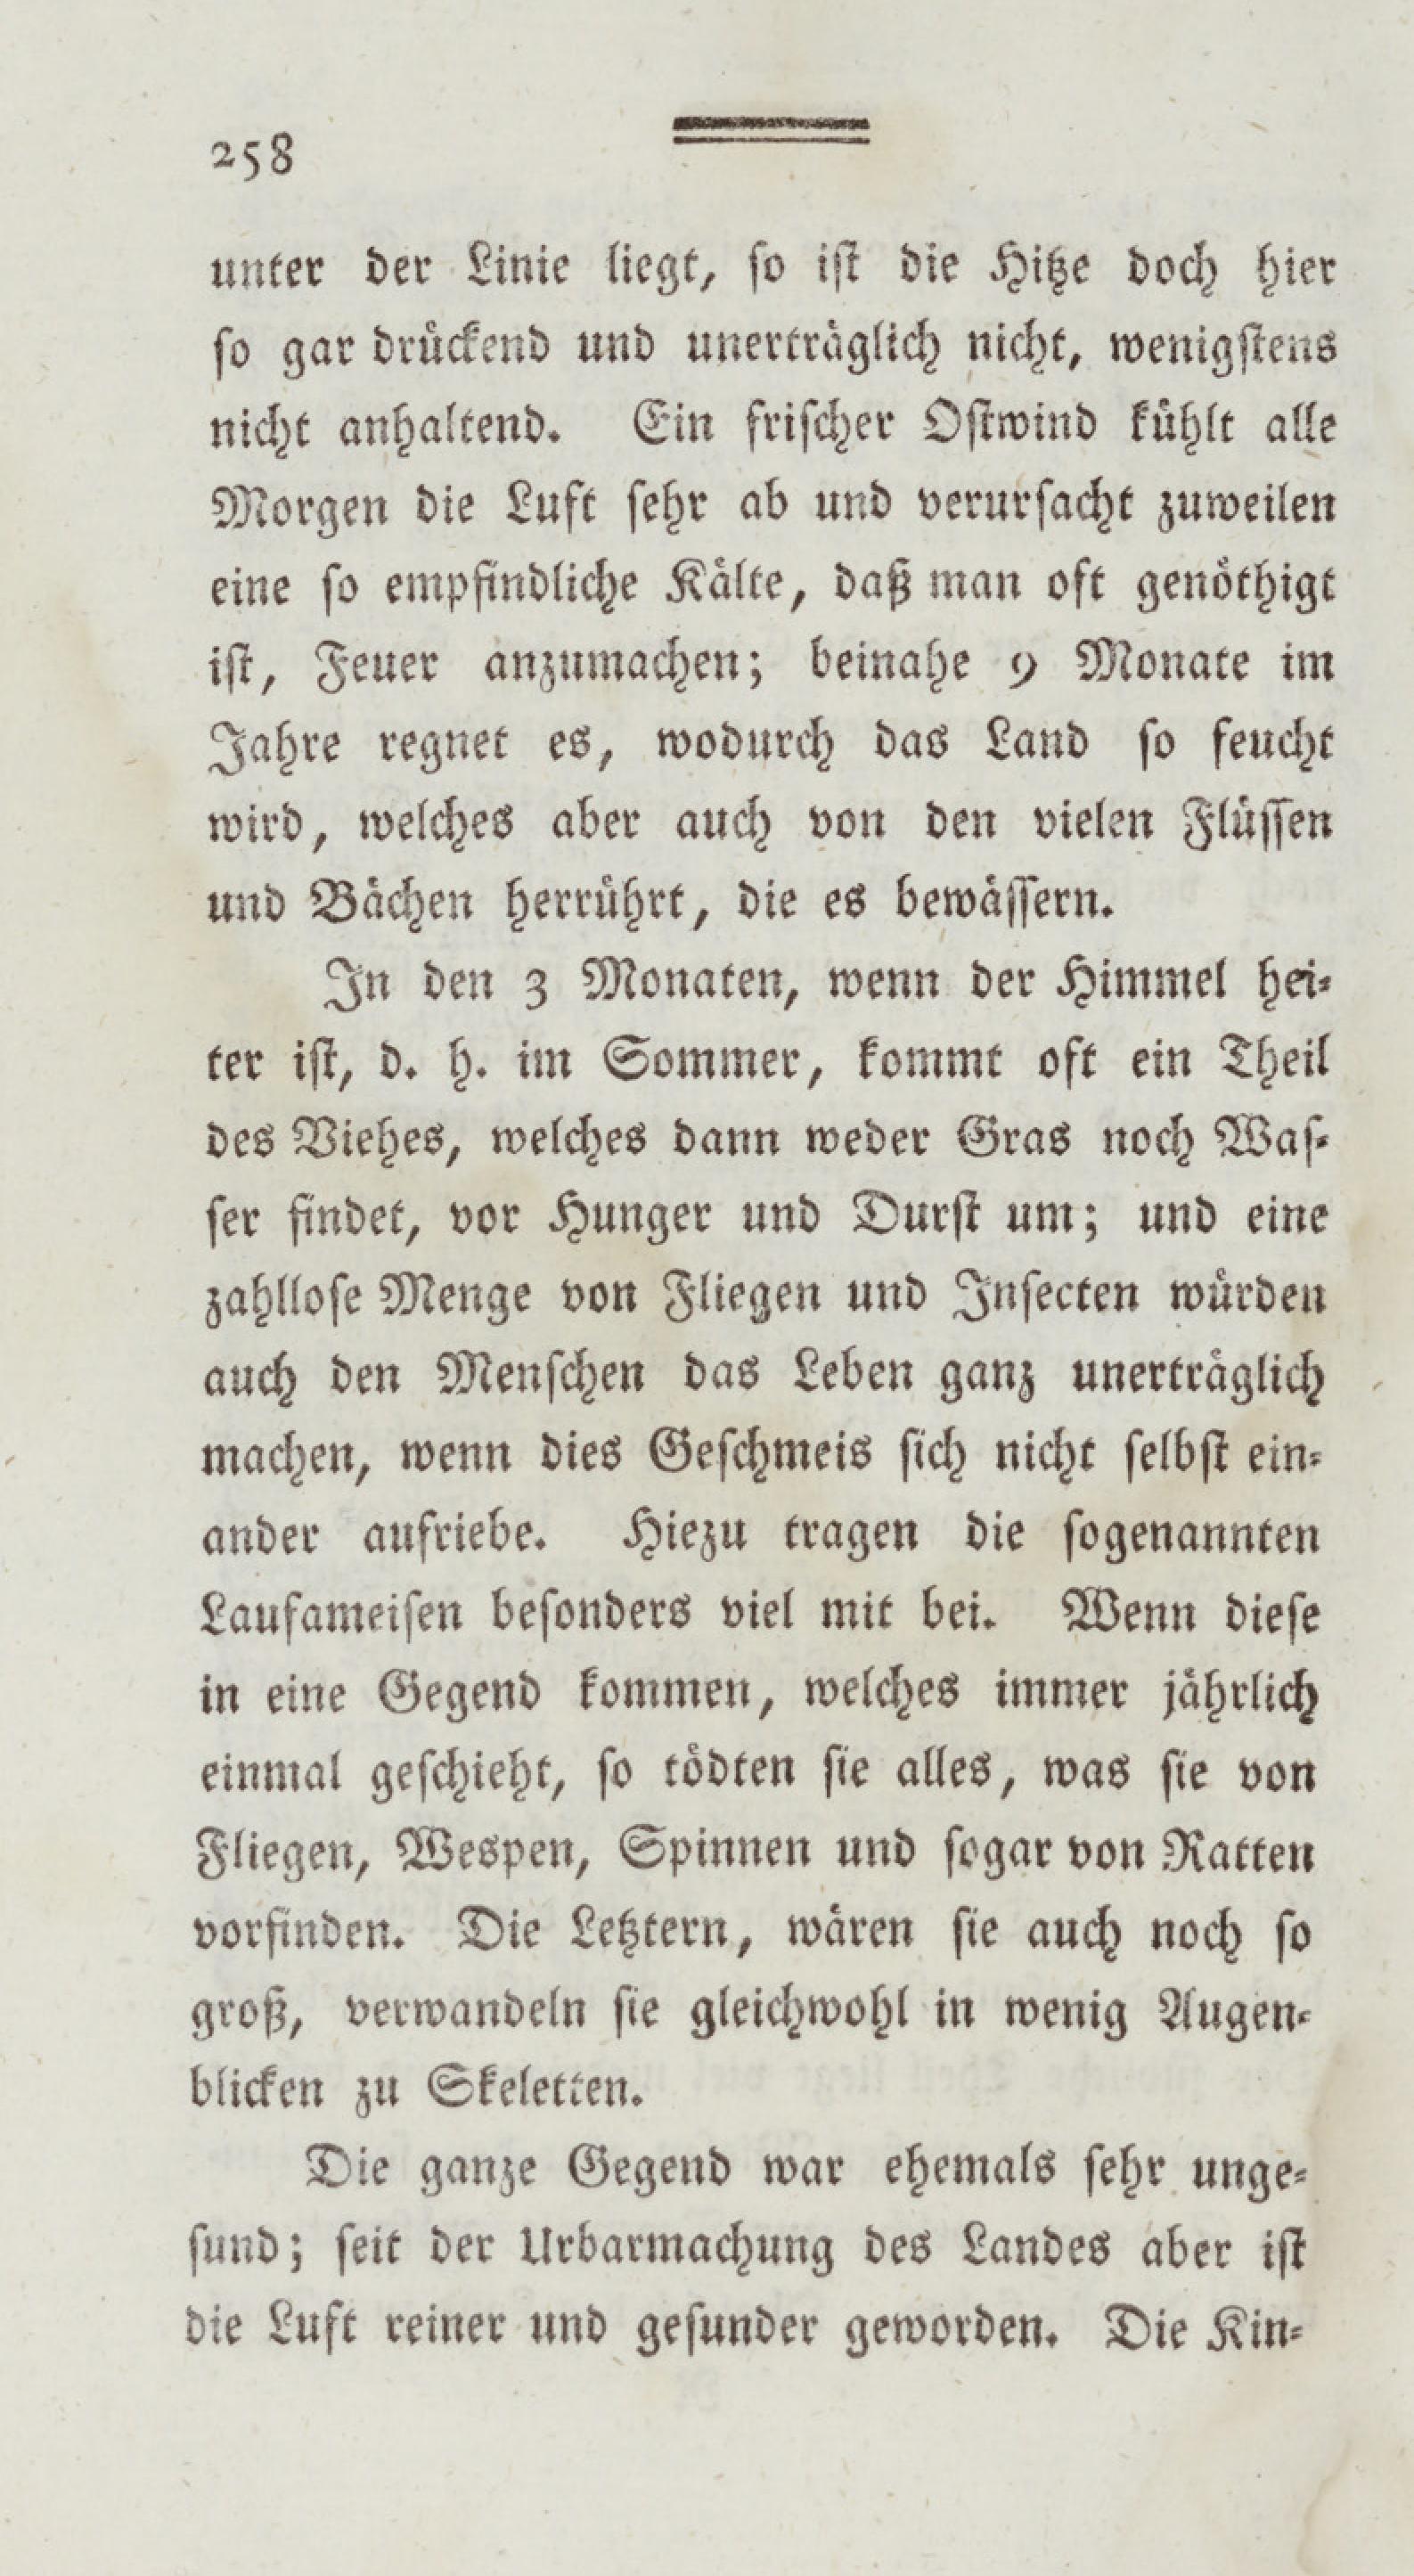 258
unter der Linie liegt, so ist die Hitze doch hier
so gar drückend und unerträglich nicht, wenigstens
nicht anhaltend. Ein frischer Ostwind kühlt alle
Morgen die Luft sehr ab und verursacht zuweilen
eine so empfindliche Kälte, daß man oft genöthigt
ist, Feuer anzumachen; beinahe 9 Monate im
Jahre regnet es, wodurch das Land so feucht
wird, welches aber auch von den vielen Flüssen
und Bächen herrührt, die es bewässern.
In den 3 Monaten, wenn der Himmel hei-
ter ist, d. h. im Sommer, kommt oft ein Theil
des Viehes, welches dann weder Gras noch Was-
ser findet, vor Hunger und Durst um; und eine
zahllose Menge von Fliegen und Insecten würden
auch den Menschen das Leben ganz unerträglich
machen, wenn dies Geschmeis sich nicht selbst ein-
ander aufriebe. Hiezu tragen die sogenannten
Laufameisen besonders viel mit bei. Wenn diese
in eine Gegend kommen, welches immer jährlich
einmal geschieht, so tödten sie alles, was sie von
Fliegen, Wespen, Spinnen und sogar von Ratten
vorfinden. Die Letztern, wären sie auch noch so
groß, verwandeln sie gleichwohl in wenig Augen-
blicken zu Skeletten.
Die ganze Gegend war ehemals sehr unge-
sund; seit der Urbarmachung des Landes aber ist
die Luft reiner und gesunder geworden. Die Kin-